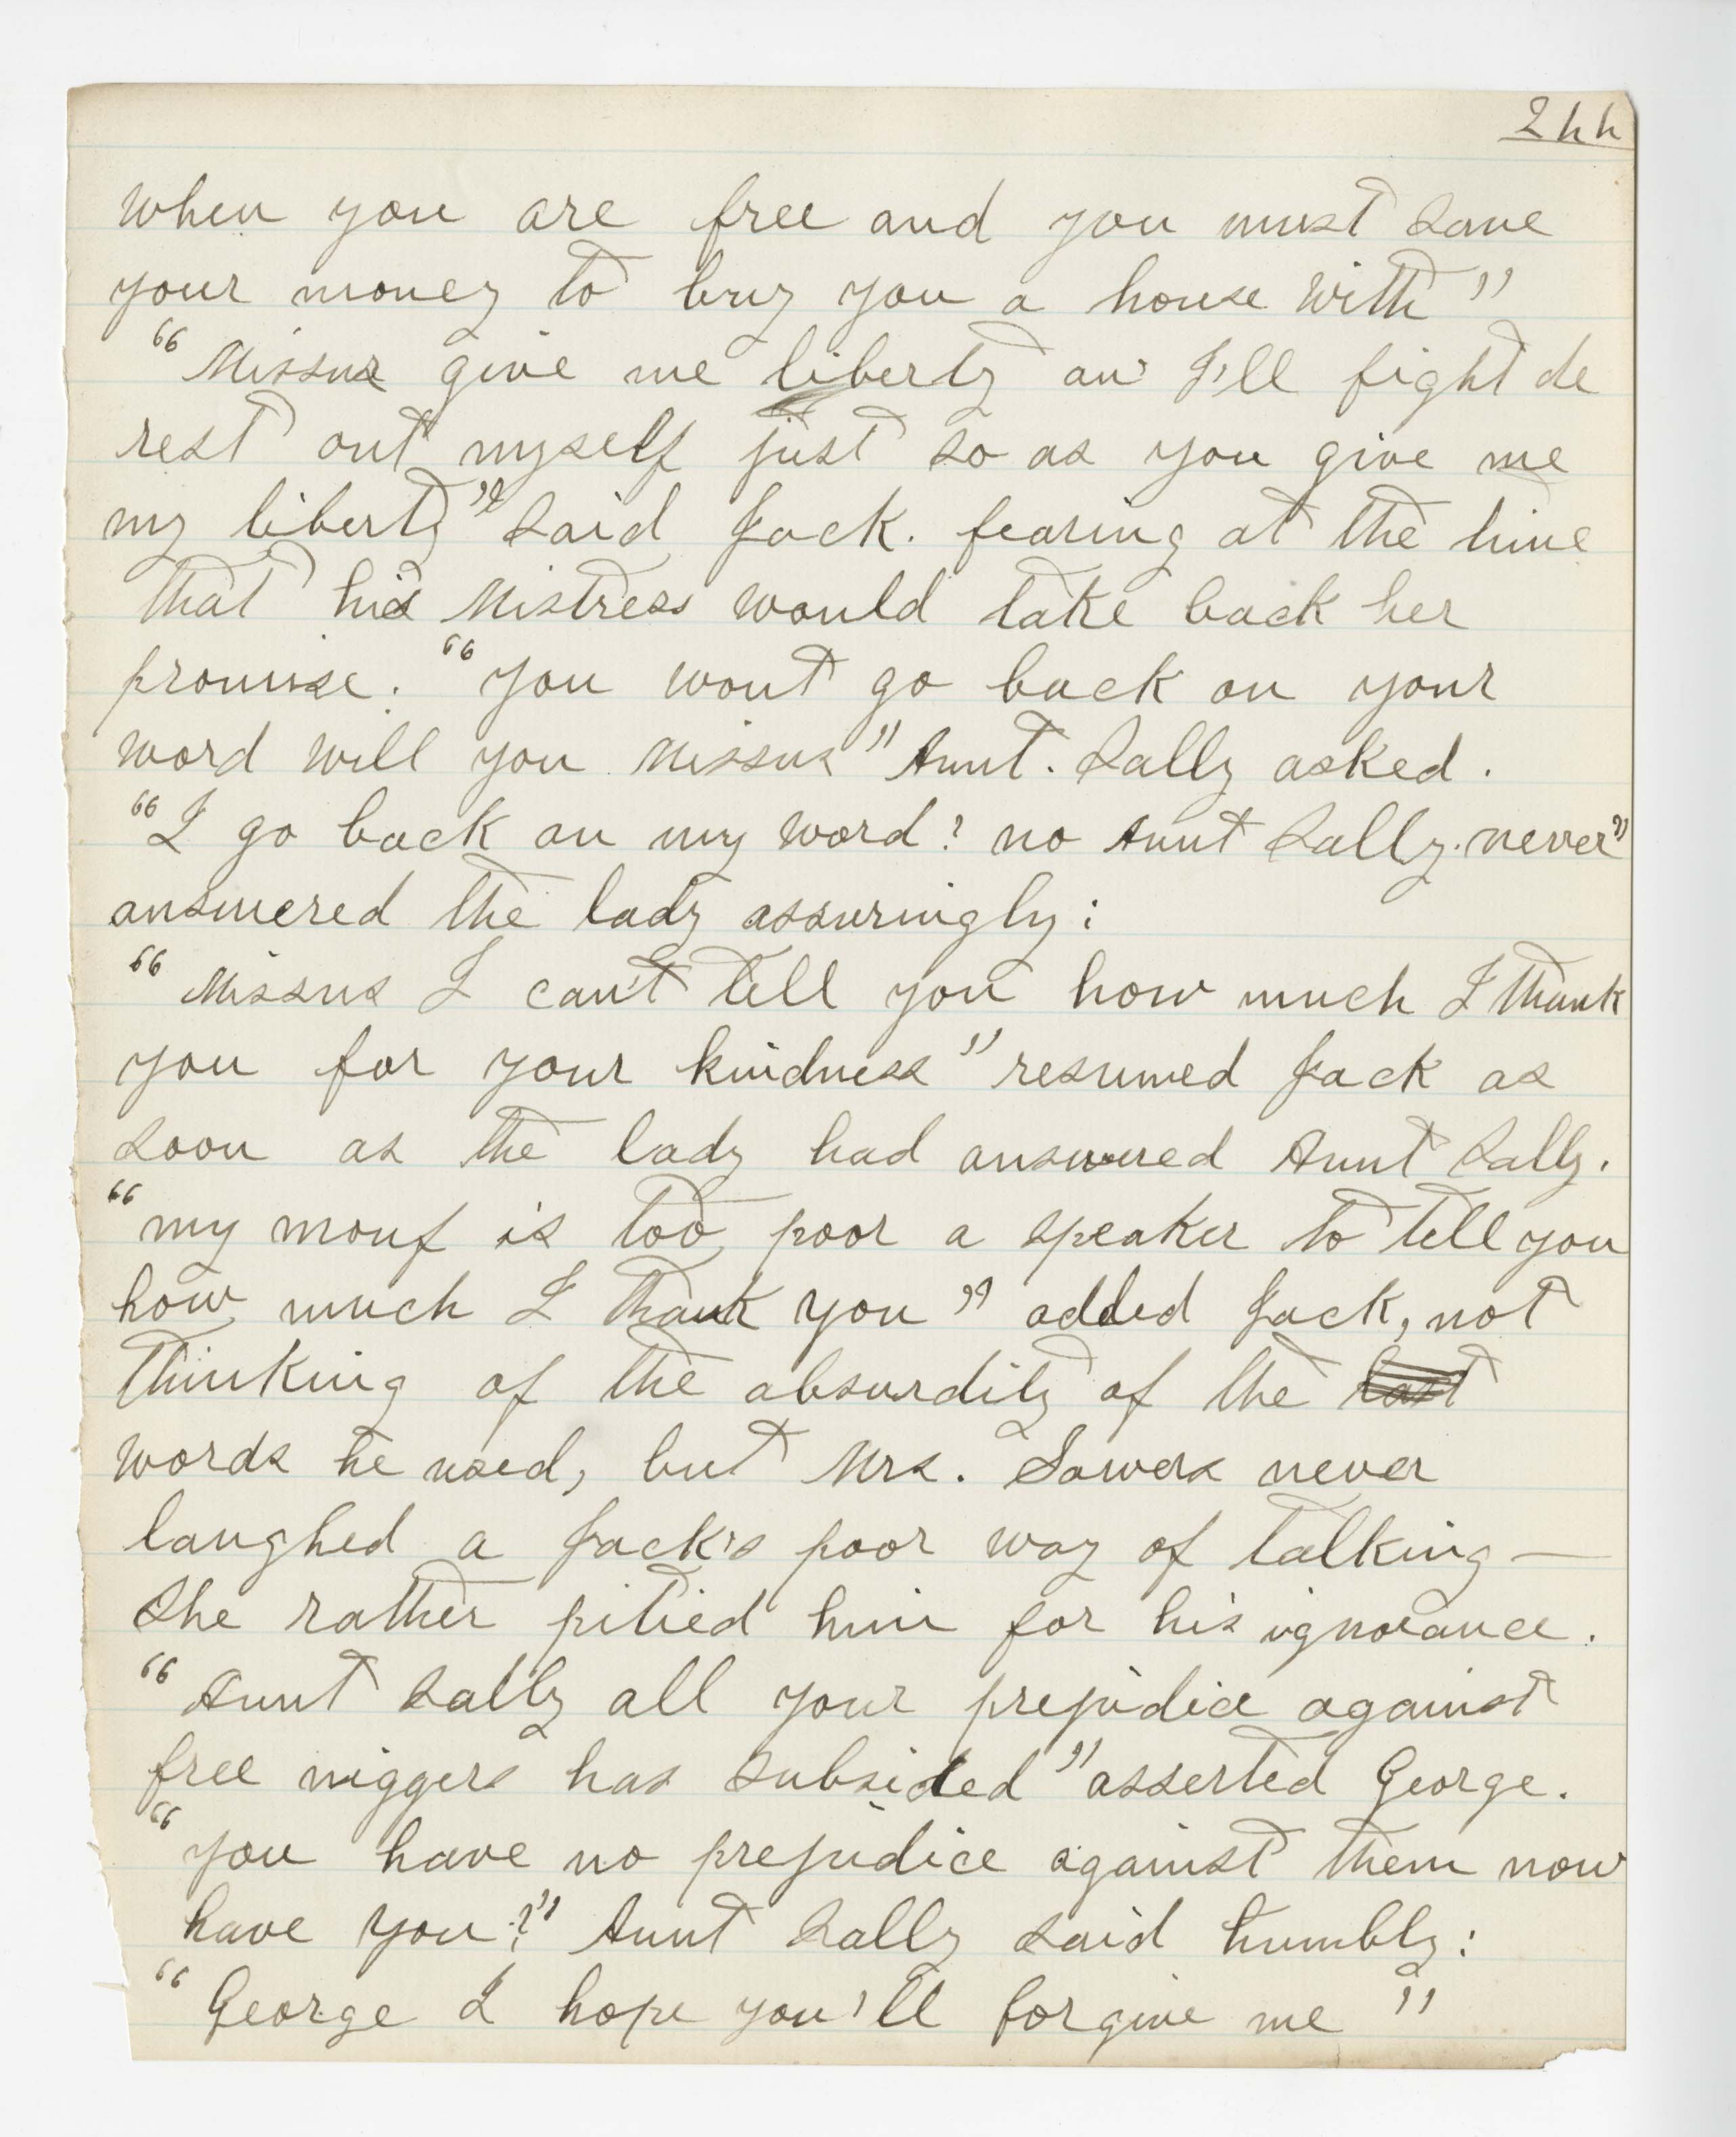 244
when you are free and you must save
your money to buy you a house with"
"Missus give me liberty an' I'll fight de
rest out myself just so as you give me
my liberty" said Jack. fearing at the time
that his Mistress would take back her
promise. "You wont go back on your
word will you Missus" Aunt. Sally asked.
"I go back on my word? no Aunt Sally. never"
answered the lady assuringly:
"Missus I can't tell you how much I thank
you for your kindness" resumed Jack as
soon as the lady had answered Aunt Sally.
"my mouf is too poor a speaker to tell you
how much I thank you" added Jack, not
thinking of the absurdity of the last
words he used, but Mrs. Sowers never
laughed a Jack's poor way of talking—
She rather pitied him for his ignorance.
"Aunt Sally all your prejudice against
free niggers has subsided" asserted George.
"you have no prejudice against them now
have you?" Aunt Sally said humbly:
"George I hope you'll forgive me"